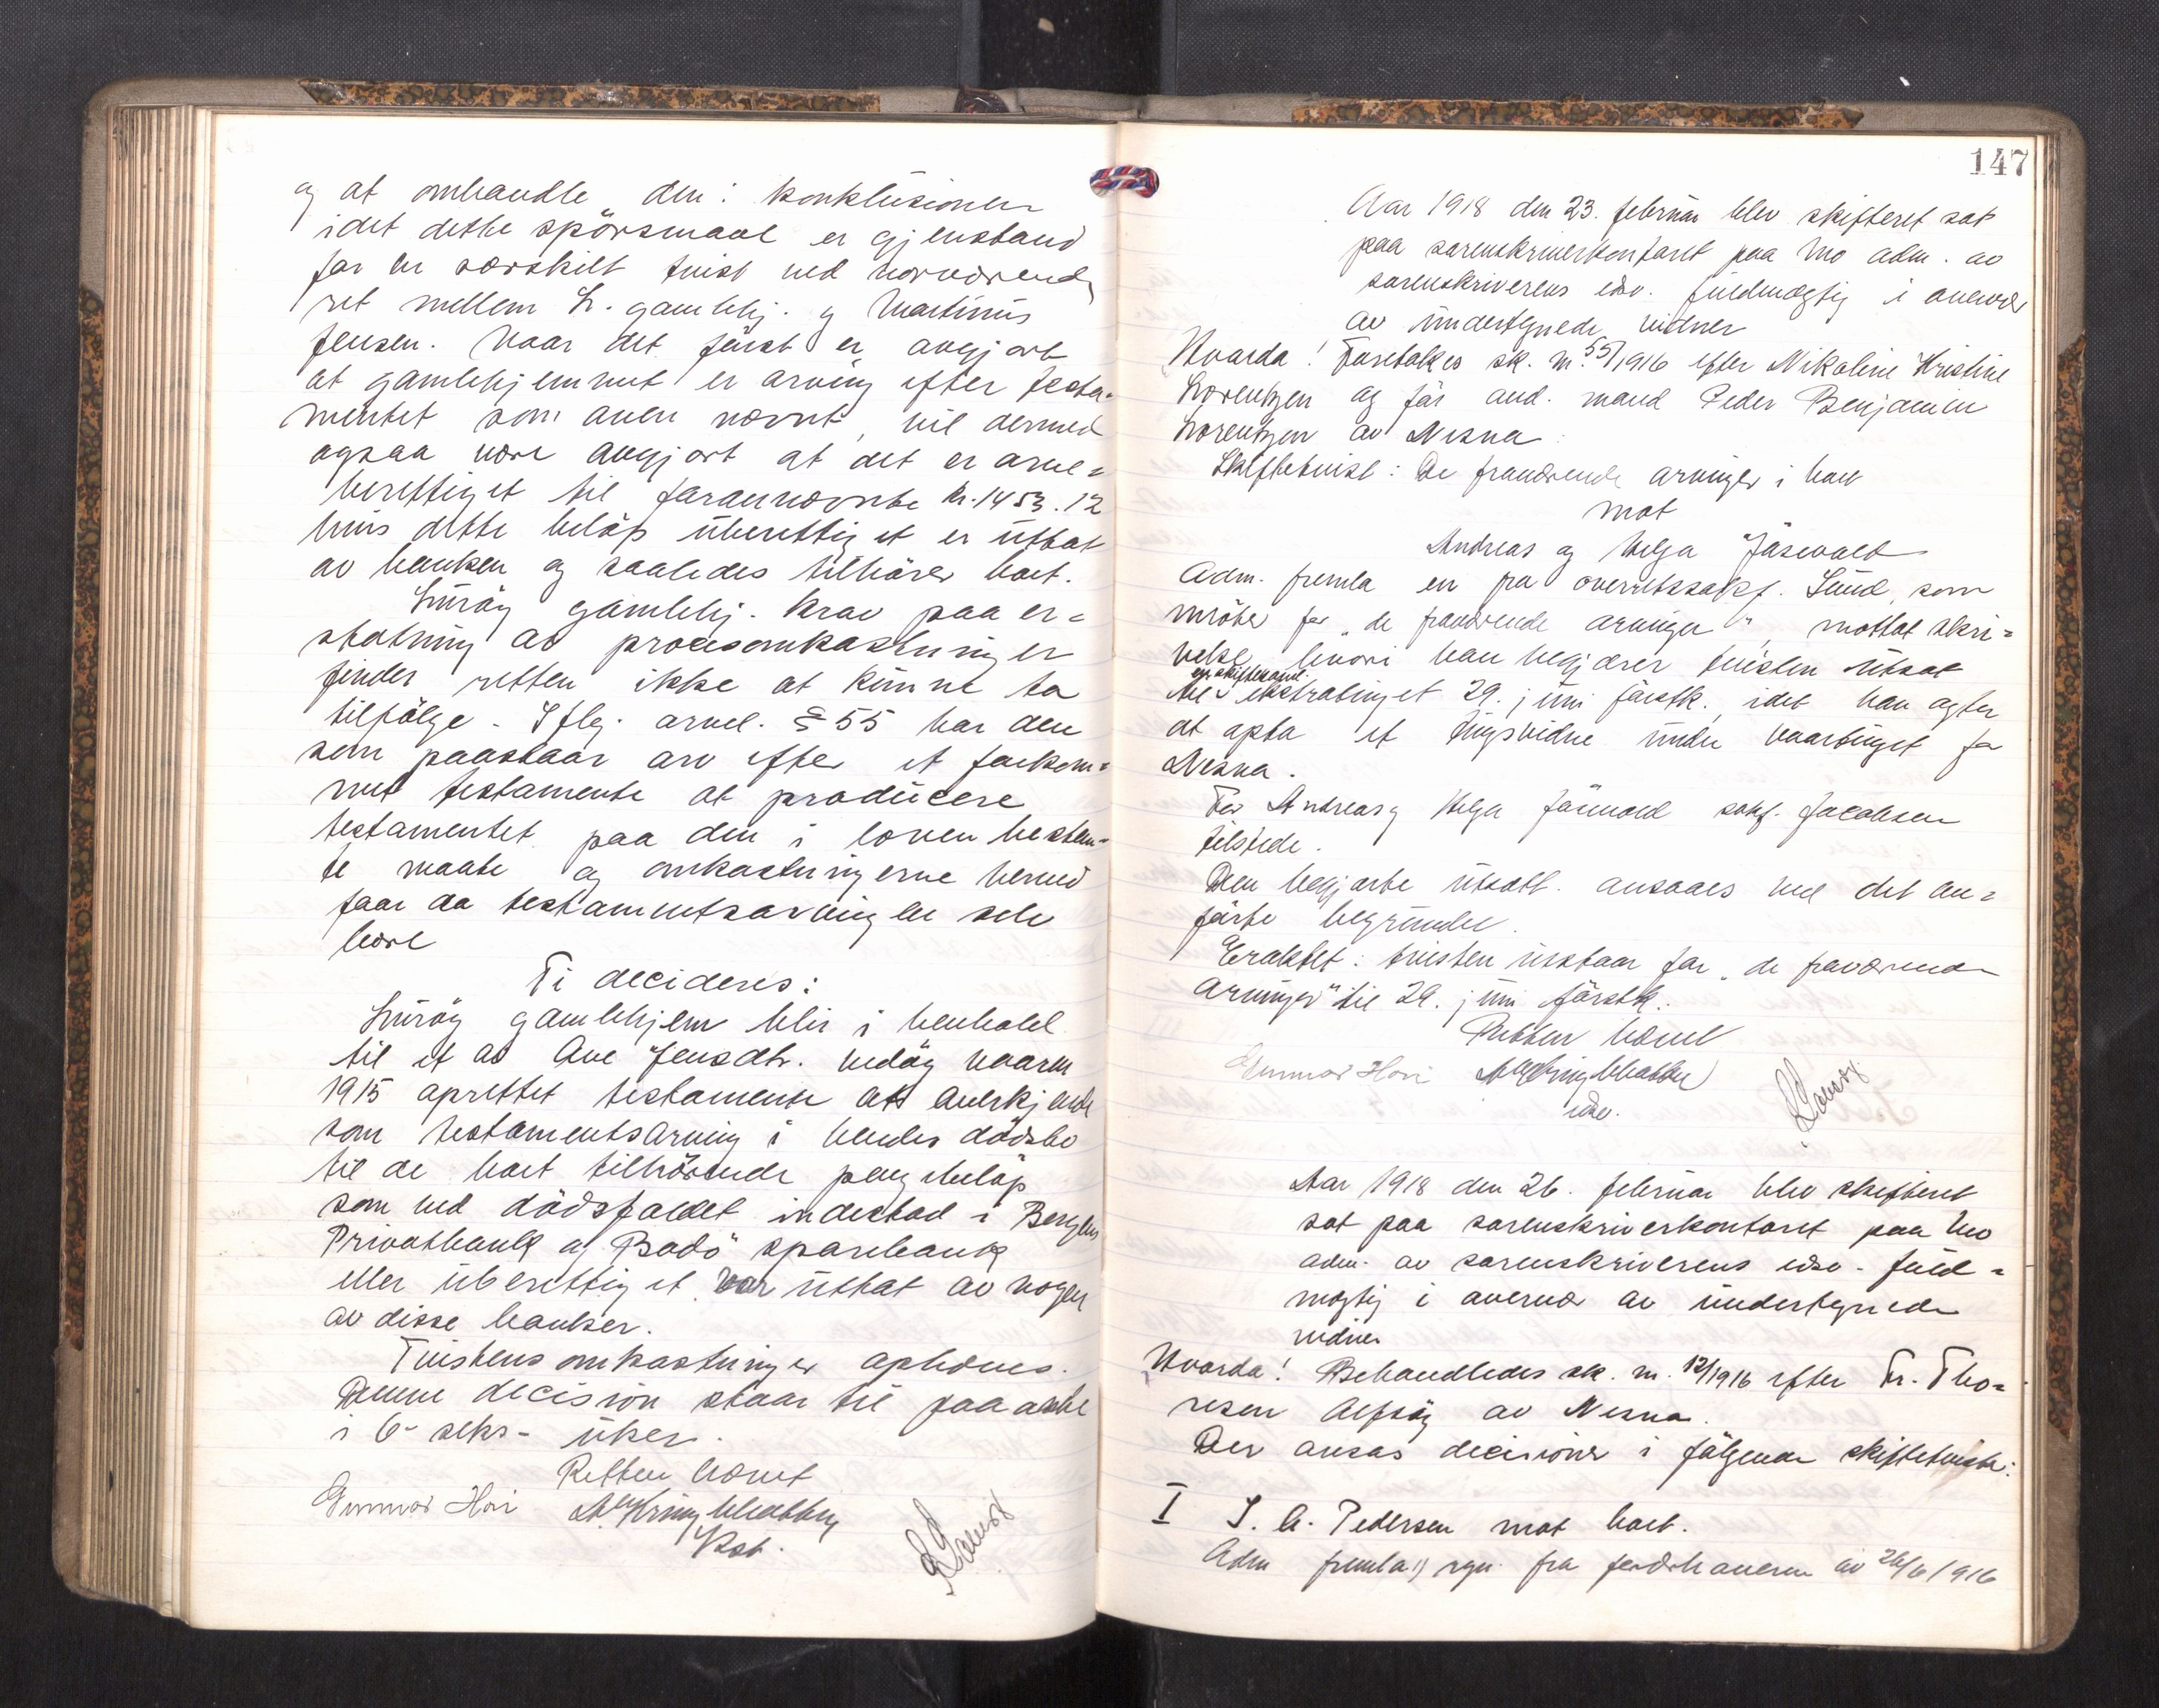 og at omhandle den i konklusionen
idet dette spörsmaal er gjenstand
for en særskilt tvist ved nærværende
ret mellem L. gamlehj. og Martinus
Jensen. Naar det först er avgjort
at gamlehjemmet er arving efter testa-
mentet som oven nævnt, vil dermed
ogsaa være avgjort at det er arve-
berettiget til forannævnte kr. 1453.12
hvis dette belöp uberettiget er uthat
av banken og saaledes tilhörer boet.
Luröy gamlehj. krav paa er-
statning av procesomkostninger
finder retten ikke at kunne ta
tilfölge. Iflg. arvel. § 55 har den
som paastaar arv efter et forkom-
met testamente at producere
testamentet paa den i loven bestem-
te maate og omkostningerne herved
faar da testamentsarvingen selv
bære
Ti decideres:
Luröy gamlehjem blir i henhold
til et av Ane Jensdtr. Nedöy vaaren
1915 oprettet testamente at anerkjende
som testamentsarving i hendes dödsbo
til de boet tilhörende pengebelöp
som ved dödsfaldet indestod i Bergens
Privatbank og Bodö sparebank
eller uberettiget var uthat av nogen
av disse banker.
Tvistens omkostninger ophæves.
Denne decision staar til paaanke
i 6 - seks - uker.
Retten hævet
Gunnar Hov
Kst.
147
Aar 1918 den 23. februar blev skifteret sat
paa sorenskriverkontoret paa Mo adm. av
sorenskriverens edsv. fuldmægtig i overvær
av undertegnede vidner
Hvorda! Foretokes sk. nr. 55/1916 efter Nikoline Kristine
Lorentzen og för avd. mand Peder Benjamin
Lorentzen av Nesna:
Skiftetvist: De fraværende arvinger i boet
mot
Andreas og Helga Jäsevold
Adm. fremla en fra overretssakf. Lund, som
möter for "de fraværende arvinger", mottat skri-
velse hvori han begjærer tvisten utsat
til ekstratinget 29. juni förstk. idet han agter
at opta et tingsvidne under vaartinget for
Nesna.
For Andreas og Helga Jäsevold sakf. Jacobsen
tilstede.
Den begjærte utsætt. ansaaes ved det an-
förte begrundet.
Eragtet: tvisten utstaar for "de fraværende
arvinger" til 29. juni förstk.
Retten hævet
Gunnar Hov
edsv.
Aar 1918 den 26. februar blev skifteret
sat paa sorenskriverkontoret paa Mo
adm. av sorenskriverens edsv. fuld-
mægtig i overvær av undertegnede
vidner
Hvorda! Behandledes sk. nr. 12/1916 efter Fr. Tho-
resen Alfsöy av Nesna.
Der avsas decisioner i fölgende skiftetvister:
I J. A. Pedersen mot boet.
Adm fremla 1) regn. fra fordrhaveren av 26/6 1916